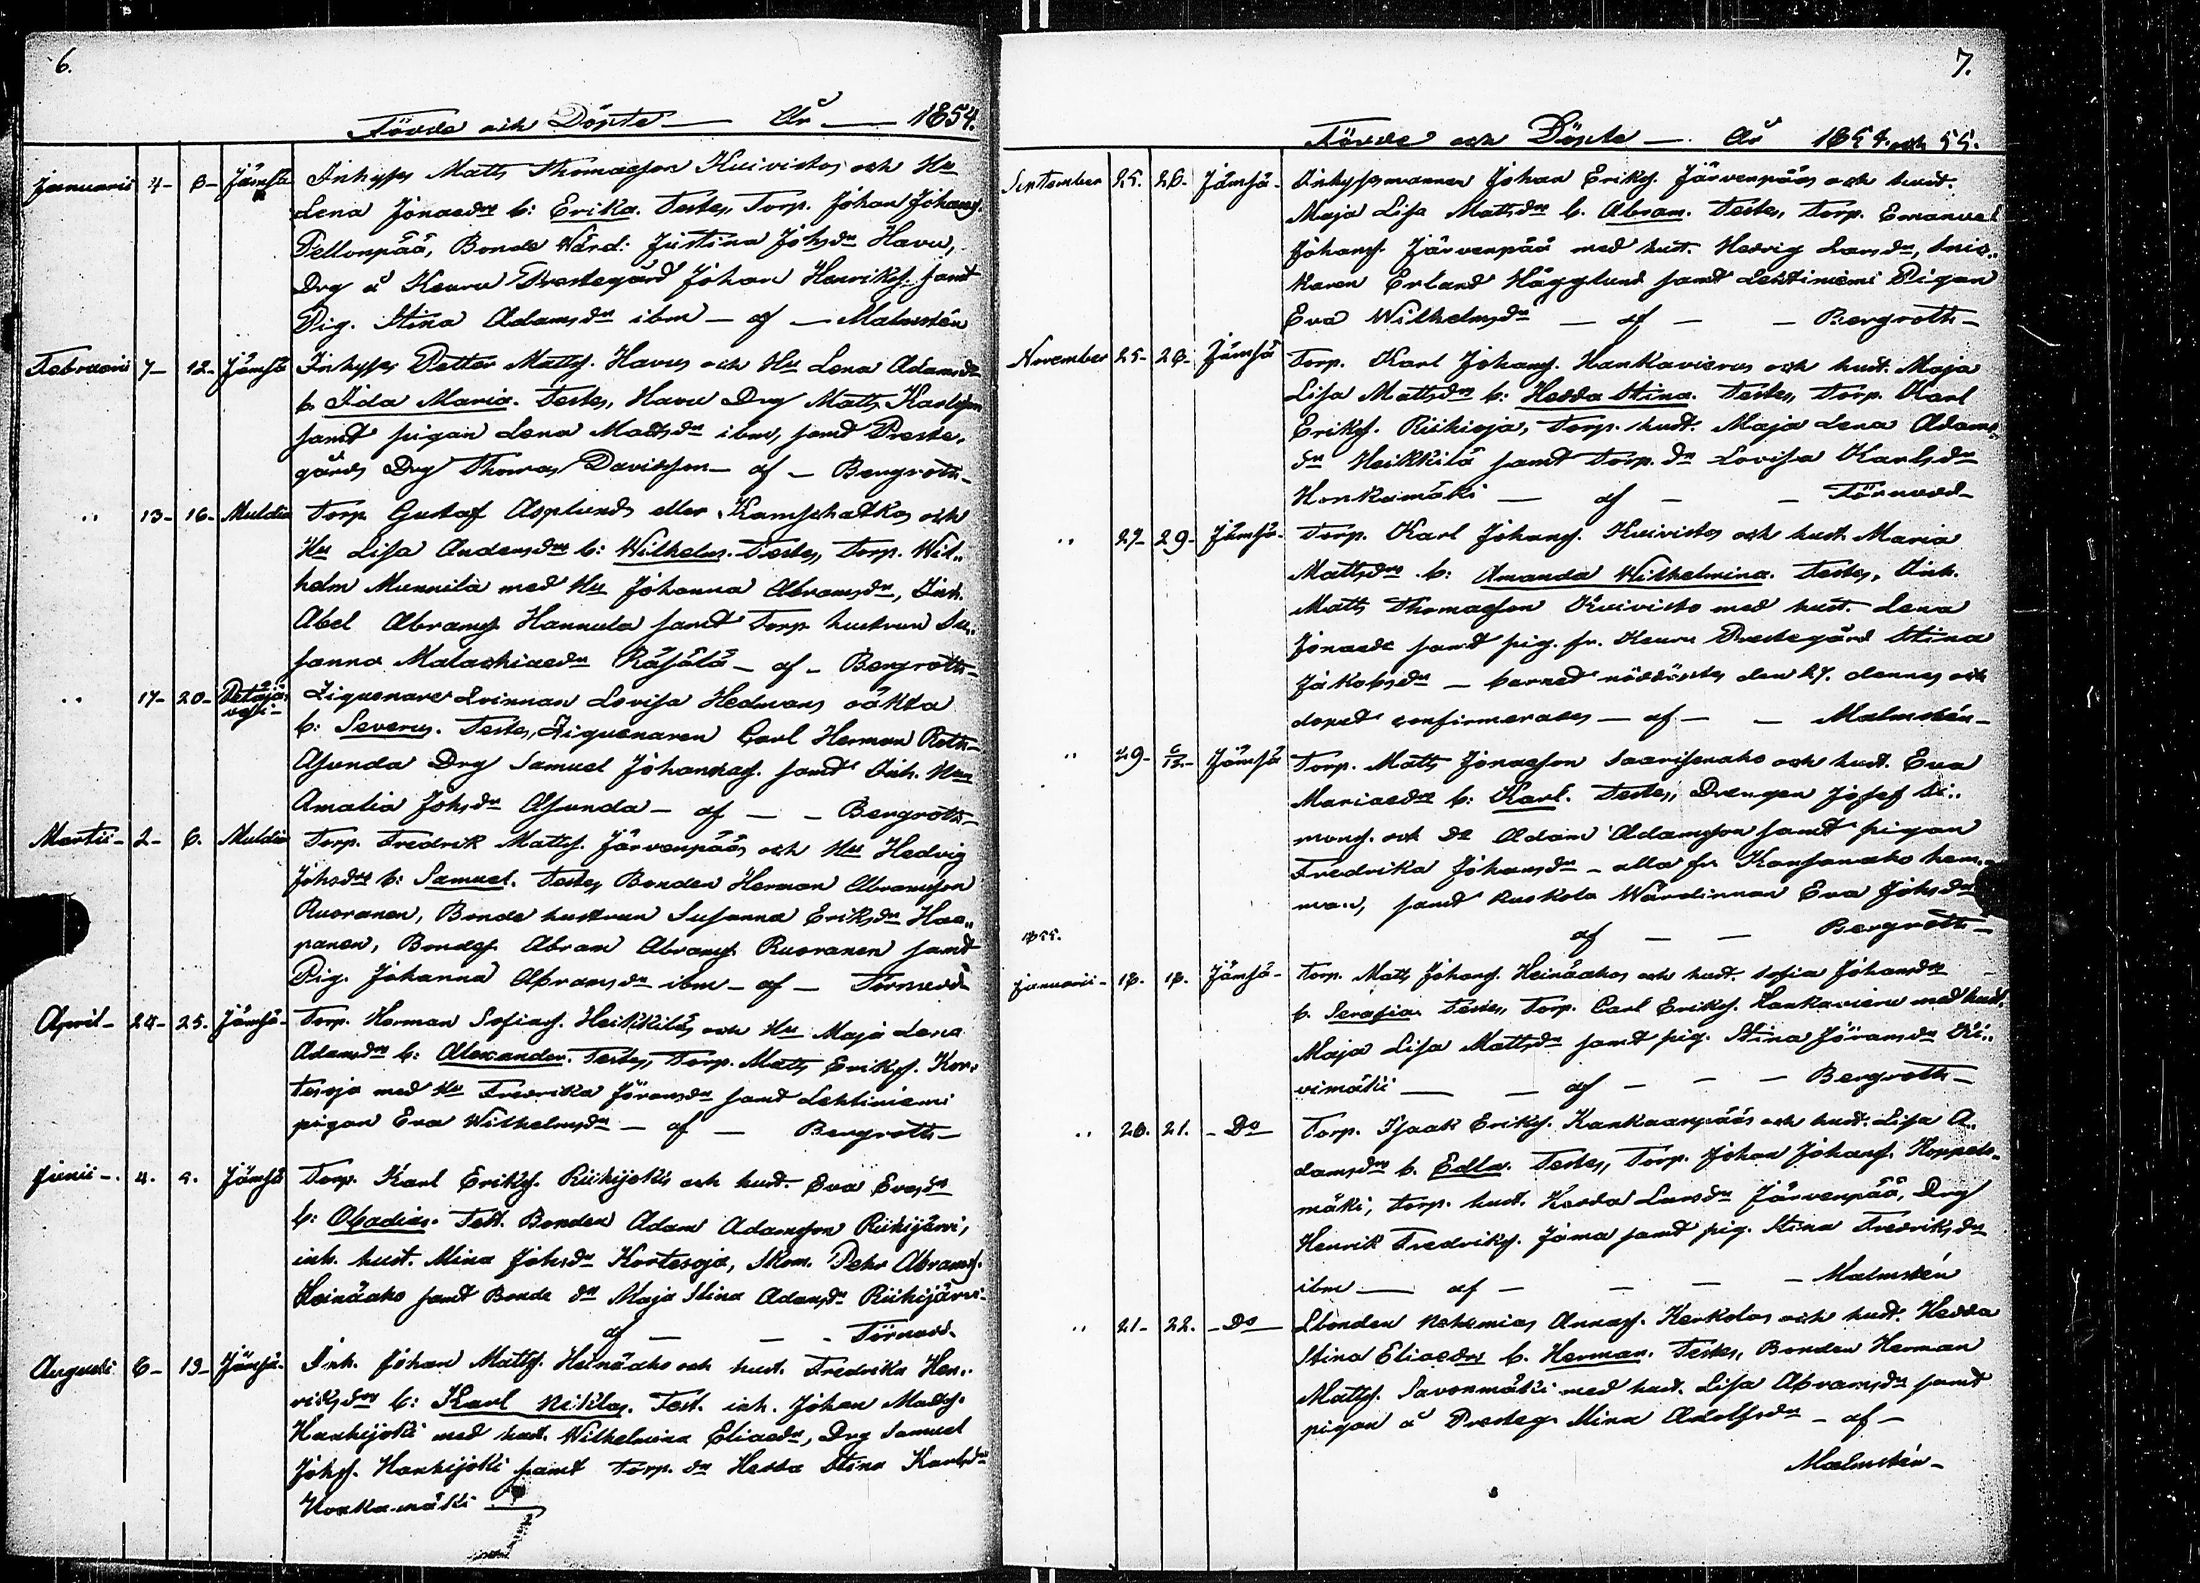 6.
Födde och Döpte — År — 1854.
Januarii 4- 8- Jämsä Inhysses Matts Thomasson Kuivistos och Hu
Lena Jonaedrs b: Erika. Testes, Torp. Johan Johans.
Pellonpää, Bonde Värd: Justina Johsdr Havu,
Drg å Keuru Prestegård Johan Henriks. samt
Pig. Stina Adamsdr ibm — af — Malmstén
Februarii 7- 12- Jämsä Inhysses Petter Matts. Havus och Hu Lena Adamsdrs
b. Ida Maria. Testes, Havu Drg Matts Karlsson
samt pigan Lena Mattsdr ibm, samt Preste,
gårds Drg Thomas Davidsson — af — Bergroth-
„ 13- 16- Muldia Torp. Gustaf Asplunds eller Kamschatkas och
Hu Lisa Andersdrs b: Wilhelm. Testes, Torp. Wil„
helm Munnila med Hu Johanna Abramsdr, Inh.
Abel Abrams. Hannula samt Torp. hustrun Su„
sanna Malachiaedr Räsälä — af — Bergroth-
„ 17- 20- Petäjä vesi- Ziguenare Qvinnan Lovisa Hedmans oäkta
b: Severus. Testes, Ziguenaren Carl Herman Roth-
Asunda Drg Samuel Johannes. samt Inh. Hu
Amalia Johsdr Asunda — af — — Bergroth-
Martii - 2- 6. Muldia Torp. Fredrik Matts. Järvenpääs och Hu Hedvig
Johsdrs b: Samuel. Testes Bonden Herman Abramsson
Ruoranen, Bonde hustrun Susanna Eriksdr Haa„
panen, Bondes. Abram Abrams. Ruoranen samt
Pig. Johanna Abramsdr ibm — af — Törnudd-
April - 24- 25. Jämsä- Torp. Herman Sofias. Heikkiläs och Hu Maja Lena
Adamsdrs b: Alexander. Testes, Torp. Matts Eriks. Kor„
tesoja med Hu Fredrika Jöransdr samt Lehtiniemi
pigan Eva Wilhelmsdr — af — Bergroth-
Junii -. 4. 9. Jämsä Torp. Karl Eriks. Riihijokis och hust. Eva Evesdrs
b: Obadias. Test. Bonden Adam Adamsson Riihijärvi,
inh. hust. Mina Johsdr Kortesoja, Skom. Pehr Abrams.
Heinäaho samt Bonde dr Maja Stina Adamsdr Riihijärvi-
af — — - Törnudd.
Augusti 6- 13- Jämsä- Inh. Johan Matts. Heinäaho och hust. Fredrika Hen„
riksdrs b: Karl Niklas. Test. inh. Johan Matts.
Hankijoki med hust. Wilhelmina Eliaedr, Drg Samuel
Johs. Hankijoki samt Torp. dr Hedda Stina Karlsdr
Honkamäki
7.
Födde och Döpte — År 1854. och 55.
September 25. 26. Jämsä- Inhyssmannen Johan Eriks. Järvenpääs och hust.
Maja Lisa Mattsdrs b. Abram. Testes, Torp. Emanuel
Johans. Järvenpää med hust. Hedvig Larsdr, Snic„
karen Erland Hägglund samt Lehtiniemi Pigan
Eva Wilhelmsdr — af — — Bergroth-
November 25- 26- Jämsä Torp. Karl Johans. Hankavierus och hust. Maja
Lisa Mattsdrs b: Hedda Stina. Testes, Torp. Karl
Eriks. Riihioja, Torp. hust. Maja Lena Adams„
dr Heikkilä samt Torp. dr Lovisa Karlsdr
Honkamäki — af — — Törnudd-
„ 27- 29- Jämsä- Torp. Karl Johans. Kuivistos och hust. Maria
Mattsdrs b: Amanda Wilhelmina. Testes, Inh.
Matts Thomasson Kuivisto med hust. Lena
Jonaedr samt pig. fr. Keuru Prestegård Stina
Jakobsdr — barnet nöddöptes den 27. dennes och
dopet confirmerades — af — — Malmstén-
„ 29- 6/12- Jämsä Torp. Matts Jonasson Saarisenaho och hust. Eva
Mariaedrs b: Karl. Testes, Drengen Josef Si„
mons. och do Adam Adamsson samt pigan
Fredrika Johansdr — alla fr. Kansanaho hem„
man, samt Ruskola Wärdinnan Eva Johsdr
af — — Bergroth-
1855.
Januarii - 18. 18. Jämsä- Torp. Matts Johans. Heinäahos och hust. Sofia Johansdrs
b. Serafia. Testes, Torp. Carl Eriks. Hankavieru med hust.
Maja Lisa Mattsdr samt pig. Stina Jöransdr Ki„
vimäki — — af — — — Bergroth-
„ 20. 21. - Do Torp. Isaak Eriks. Kankaanpääs och hust. Lisa A„
damsdrs b. Edla. Testes, Torp. Johan Johans. Koppelo„
mäki, Torp. hust. Hedda Larsdr Järvenpää, Drg
Henrik Fredriks. Jäma samt pig. Stina Fredriksdr
ibm — af — — — Malmstén
„ 21- 22. - Do Lbonden Nehemias Annas. Kerkolas och hust. Hedda
Stina Eliaedrs b. Herman. Testes, Bonden Herman
Matts. Savonmäki med hust. Lisa Abramsdr samt
pigan å Presteg. Mina Adolfsdr — af —
Malmstén-